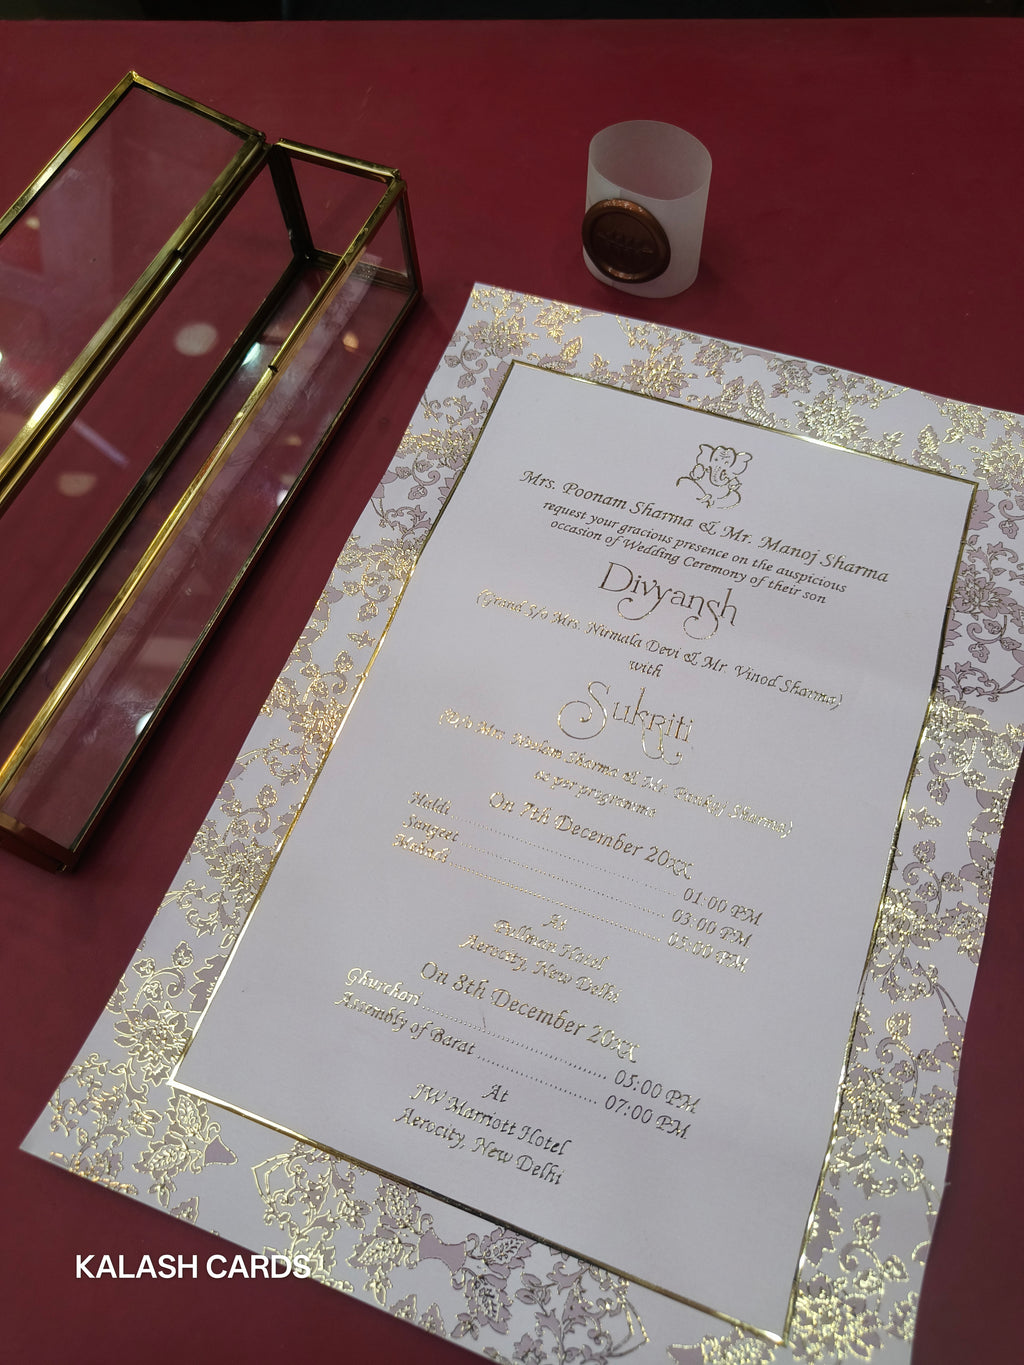 Mrs. Poonam Sharma & Mr. Manoj Sharma
request your gracious presence on the auspicious
occasion of Wedding Ceremony of their son
Divyansh
(Grand S/o Mrs. Nirmala Devi & Mr. Vinod Sharma)
with
Sukriti
(D/o Mrs. Neelam Sharma & Mr. Pankaj Sharma)
as per programme
On 7th December 20XX
Haldi 01:00 PM
Sangeet 03:00 PM
05:00 PM
At
Pullman Hotel
Aerocity, New Delhi
On 8th December 20XX
Ghurchari 05:00 PM
Assembly of Barat 07:00 PM
At
JW Marriott Hotel
Aerocity, New Delhi
KALASH CARDS